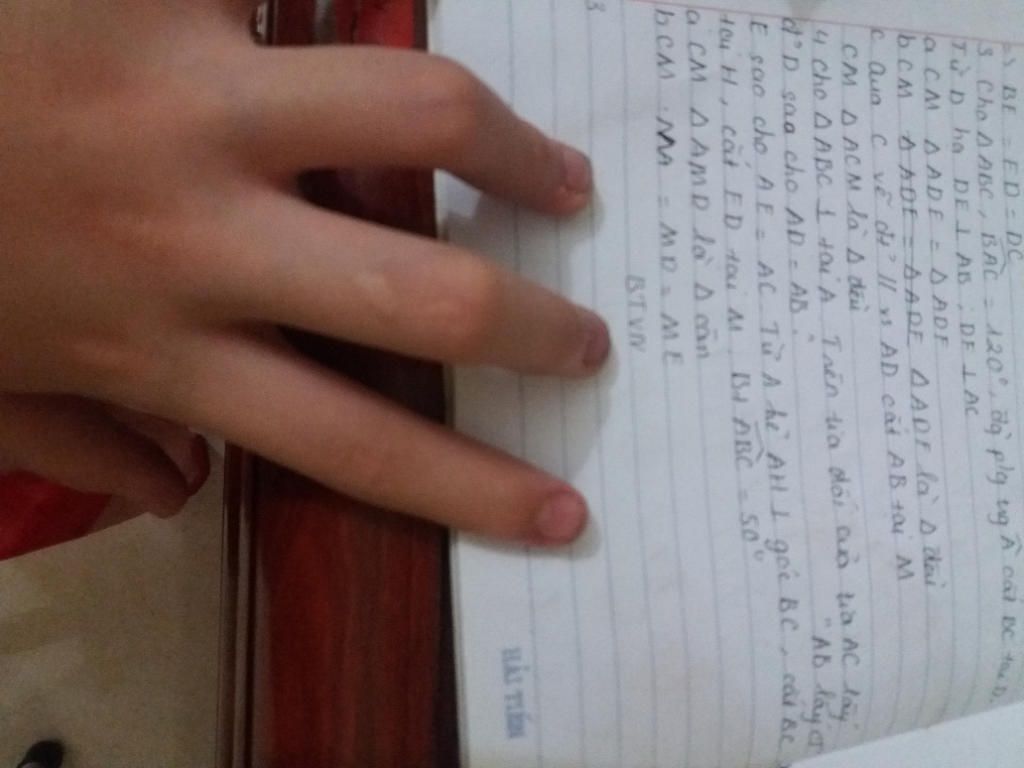 => BE = ED = DC
3 Cho ΔABC, BAC = 120°, đg p/g ng A cắt BC tại D.
Từ D hạ DE ⊥ AB, DF ⊥ AC
a CM ΔADE = ΔADF
b CM ΔADE = ΔADF ΔADF là Δ đều
c qua C vẽ đt // vs AD cắt AB tại M
CM ΔACM là Δ đều
4 cho ΔABC ⊥ tại A Trên tia đối của tia AC lấy
đ° D sao cho AD = AB. " " AB lấy đ°
E sao cho AE = AC Từ A kẻ AH ⊥ góc BC, cắt BC
tại H, cắt ED tại M. Bt ABC = 50°
a CM ΔAMD là Δ cân
b CM. MA = MD = ME
BTVN
3
HẢI TIẾN